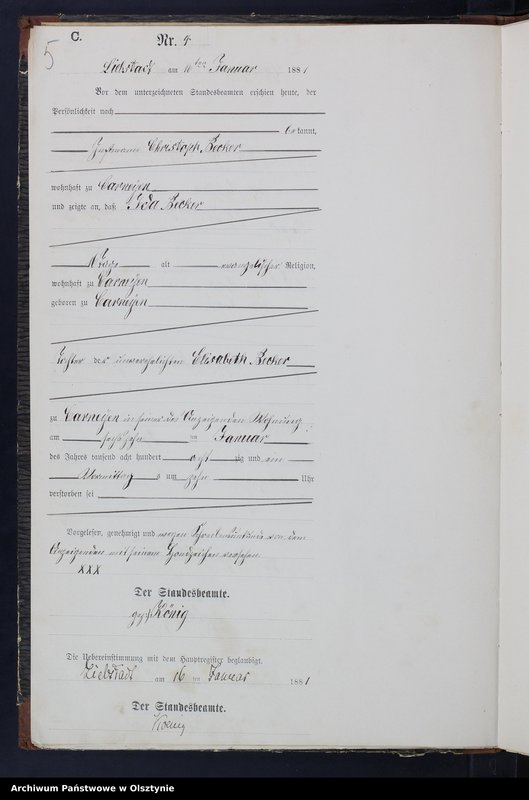 5
C.
Nr. 5
Liebstadt am 16ten Januar 1881
Vor dem unterzeichneten Standesbeamten erschien heute, der
Persönlichkeit nach
bekannt,
Christoph Becker
wohnhaft zu Carneyen
und zeigte an, daß Ida Becker
Tage alt evangelischer Religion,
wohnhaft zu Carneyen
geboren zu Carneyen
Tochter der unverehelichten Elisabeth Becker
zu Carneyen in seiner des Anzeigenden Wohnung
am sechszehn ten Januar
des Jahres tausend acht hundert acht zig und ein
Vormittags um zehn Uhr
verstorben sei
Vorgelesen, genehmigt und wegen Schreibensunkunde von dem
Anzeigenden mit seinem Handzeichen versehen.
XXX
Der Standesbeamte.
gez. König
Die Uebereinstimmung mit dem Hauptregister beglaubigt.
Liebstadt am 16 ten Januar 1881
Der Standesbeamte.
Koenig
Archiwum Państwowe w Olsztynie